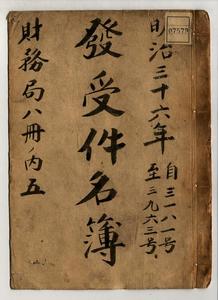 明治三十六年
自三一八一号
至三九六三号
發受件名簿
財務局八冊ノ内五
07579